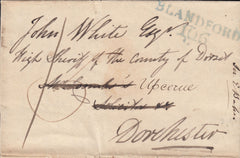 BLANDFORD
106
John White Esqr
High Sheriff of the County of Dorset
Upcerne
Dorchester